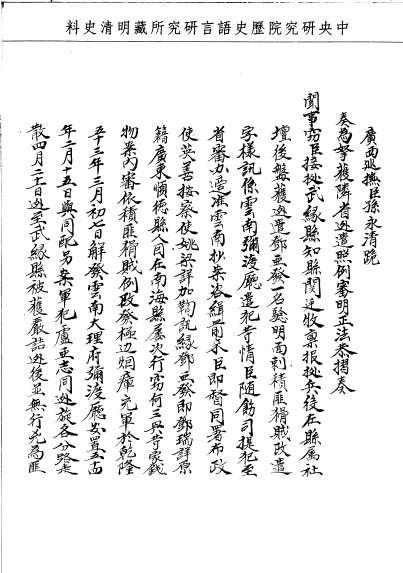 中央研究院歷史語言研究所藏明清史料
廣西巡撫臣孫永清跪
奏為拏獲隣省逃遣照例審明正法恭摺奏
聞事窃臣接據武緣縣知縣関廷牧稟报拠兵役在縣属社
壇後盤獲逃遣鄧亜發一名驗明面刺積匪猾賊改遣
字樣訊係雲南彌渡廳遣犯等情臣随飭司提犯至
省審办適准雲南抄案咨緝前来臣即督同署布政
使英善按察使姚棻詳加鞫訊縁鄧亜發即鄧瑞詳原
籍廣東順德縣人因在南海縣屢次行窃何三兴等家錢
物案内審依積匪猾賊例改發極边烟瘴充軍於乾隆
五十三年三月初七日解發雲南大理府彌渡廳安置五十四
年二月十五日與同配另案軍犯盧亜志同逃旋各分路走
散四月二十一日逃至武緣縣被獲嚴詰逃後並無行兇為匪